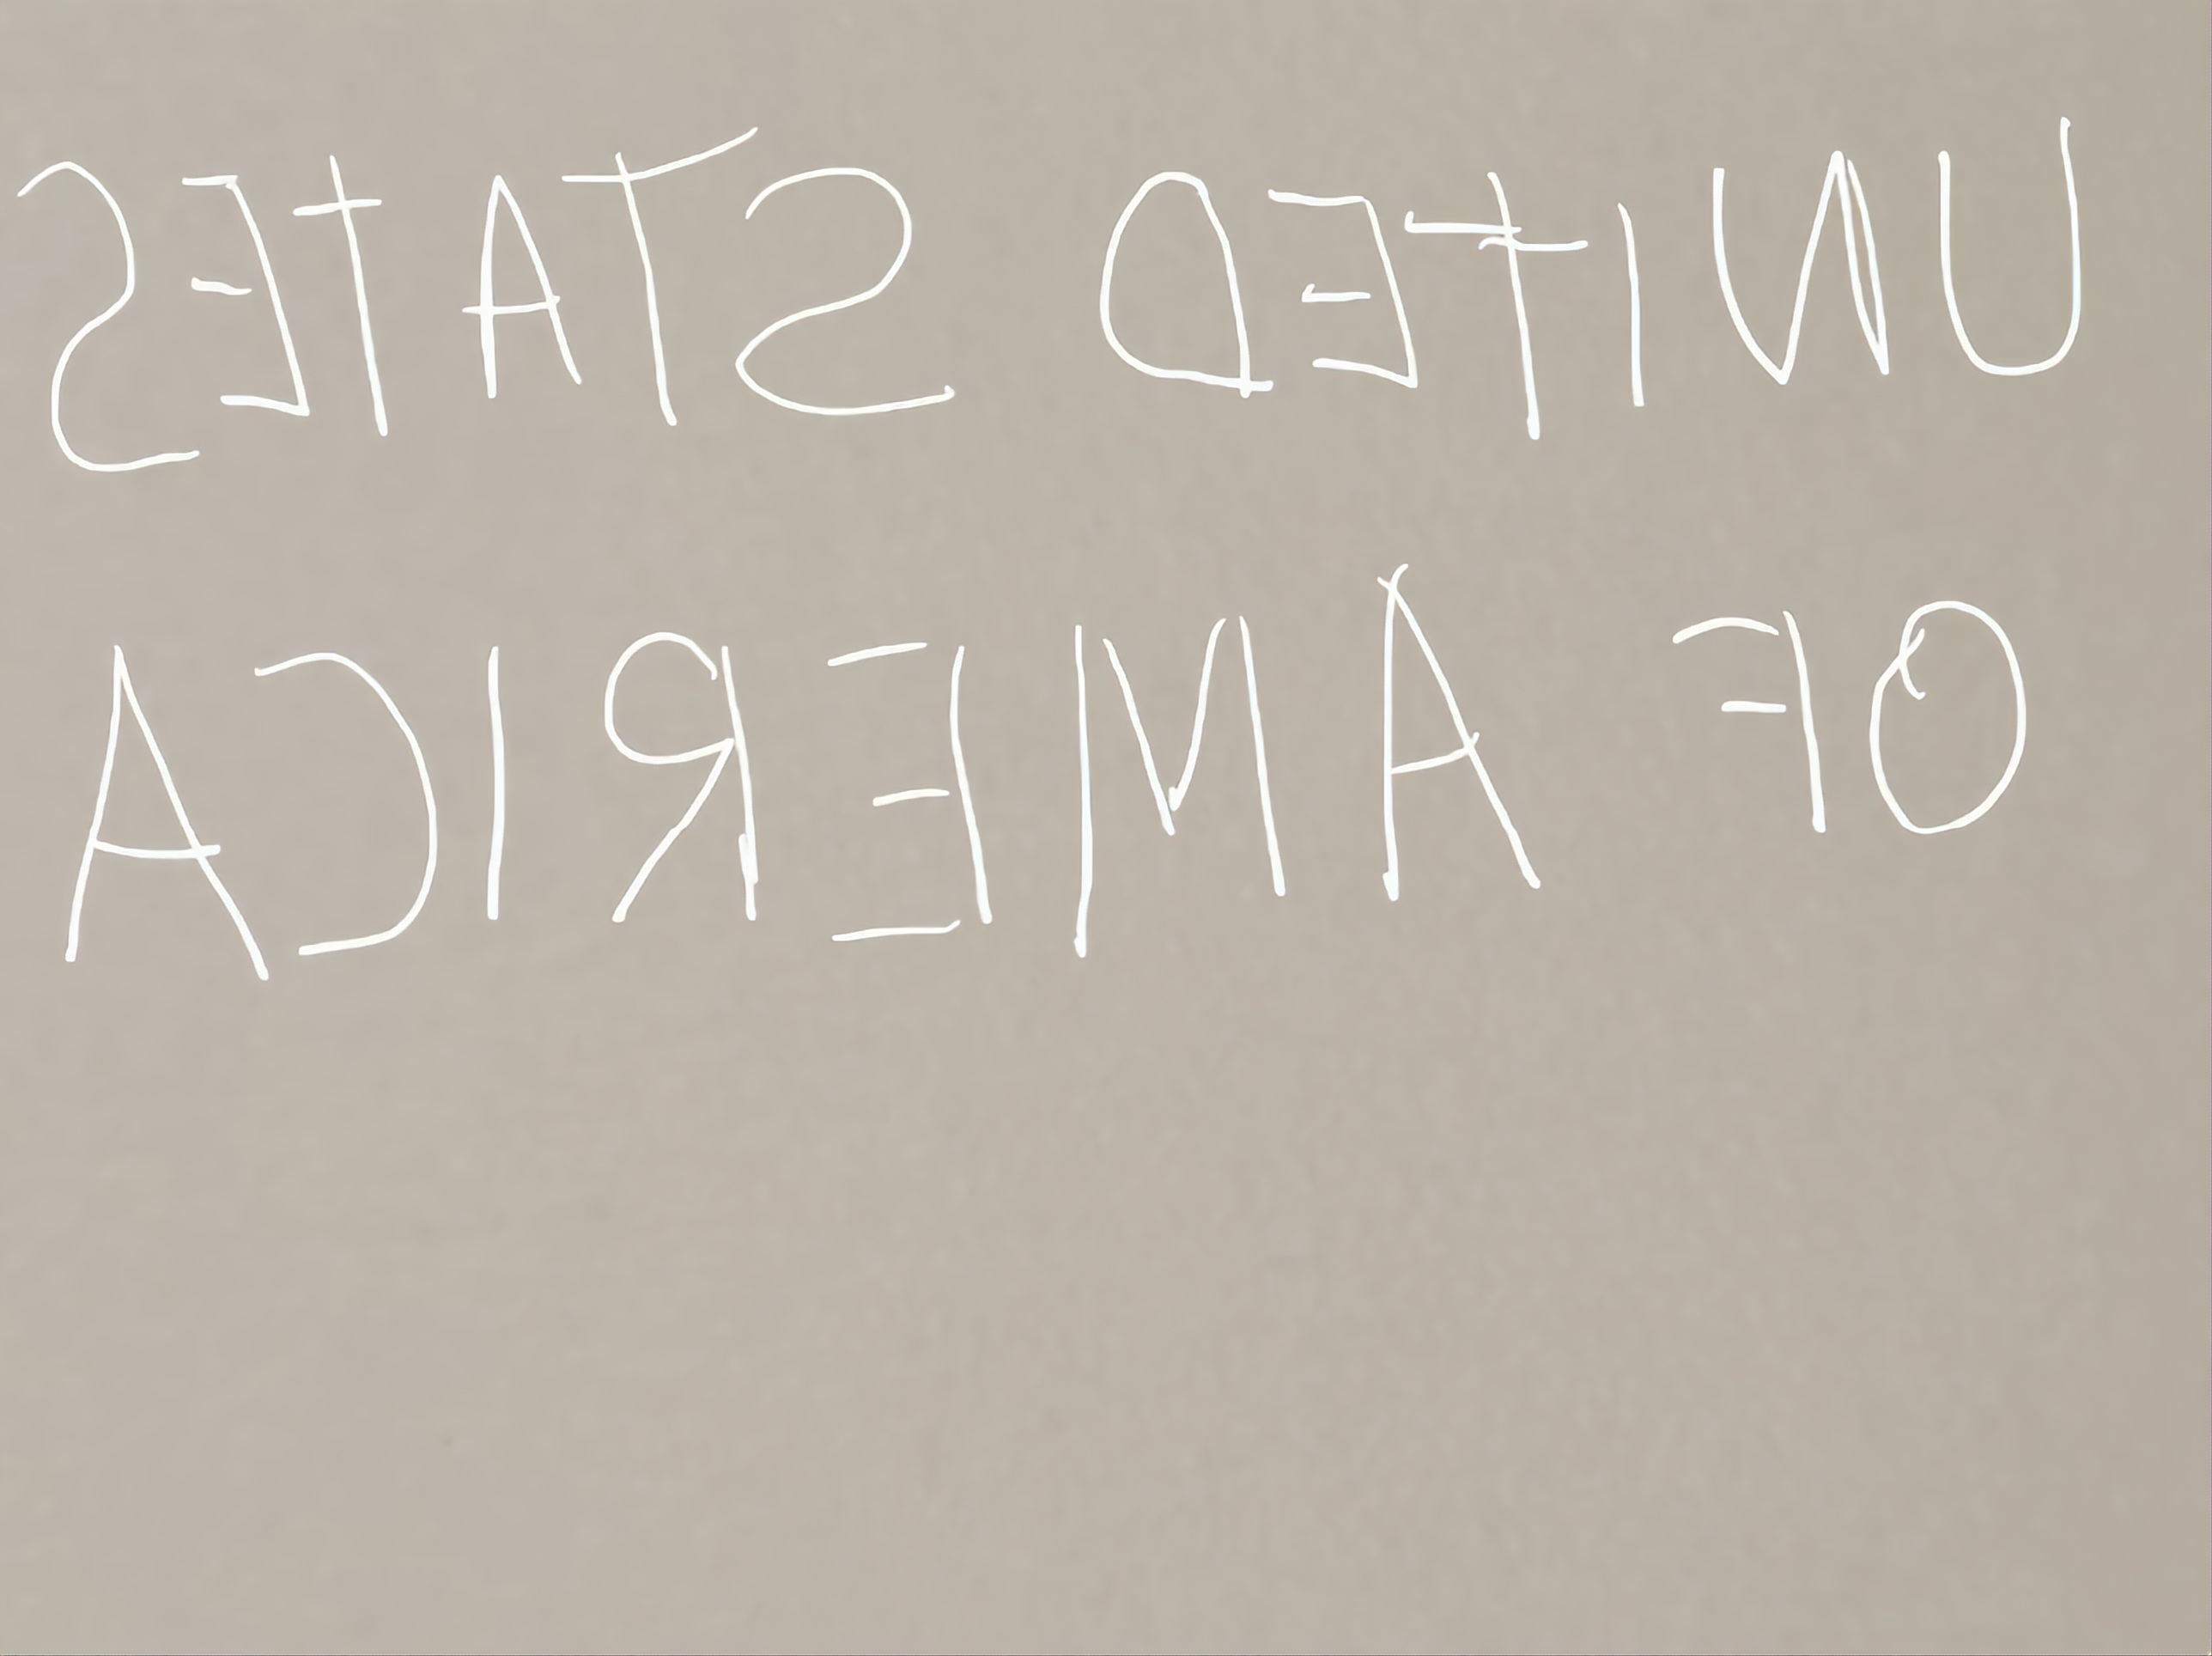 UNITED STATES
OF AMERICA